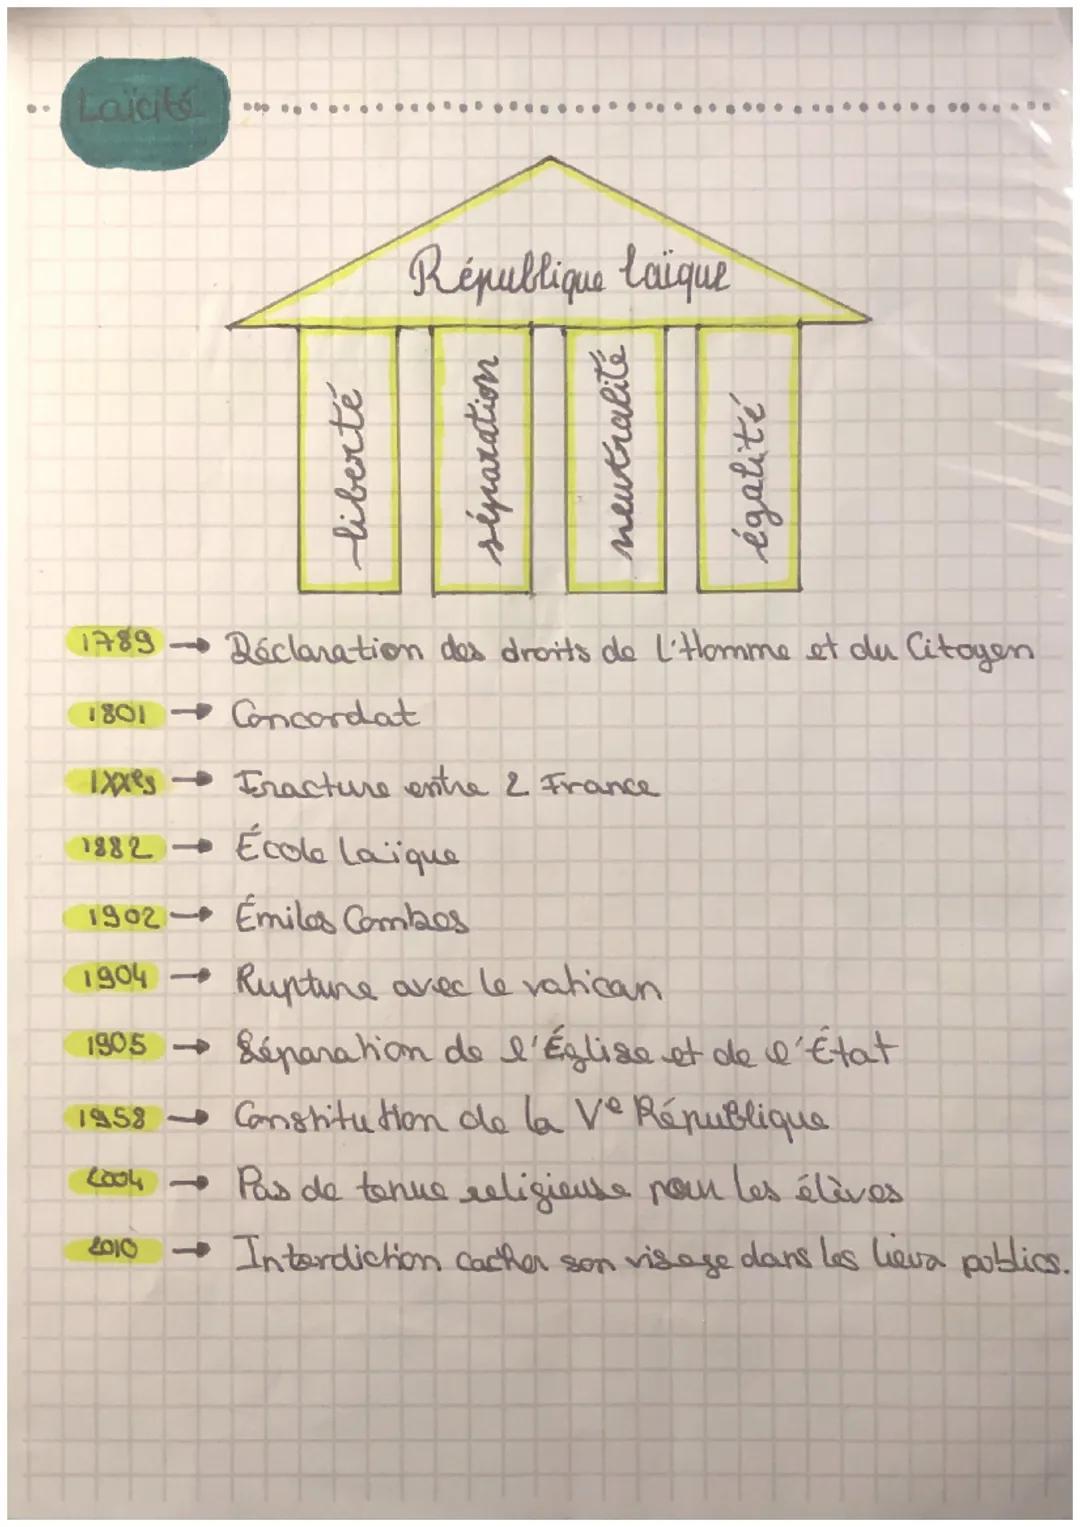 Laïcité
République laïque
liberté
séparation
neutralité
égalité
1789 → Déclaration des droits de l'Homme et du Citoyen
1801 → Concordat
IXXes → Fracture entre 2 France
1882 → École laïque
1902 → Émiles Combes
1904 → Rupture avec le vatican
1905 → Séparation de l'Église et de l'État
1958 → Constitution de la Ve République
2004 → Pas de tenue religieuse pour les élèves
2010 → Interdiction cacher son visage dans les lieux publics.